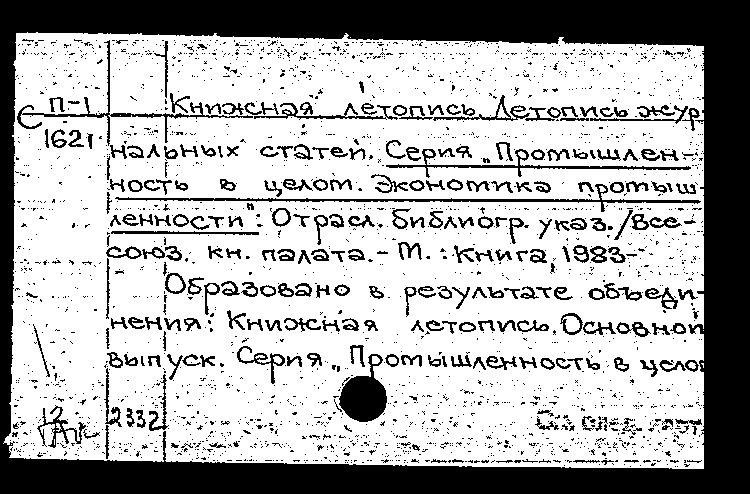 П-1 Книжная летопись. Летопись жур-
Є
1621
нальных статей. Серия „Промышлен-
ность в целом. Экономика промыш-
ленности": Отрасл. библиогр. указ./Все-
союз. кн. палата. - М. : Книга, 1983-
Образовано в результате объеди-
нения: Книжная летопись. Основной
выпуск. Серия „Промышленность в целом
2332
См. след. карт